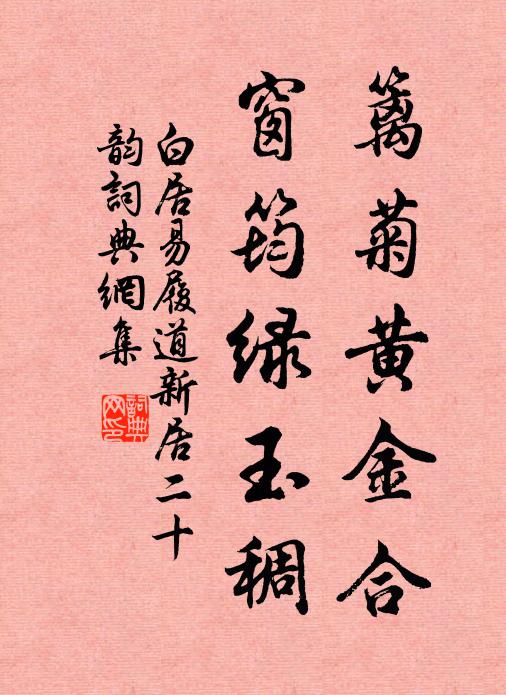 籬菊黄金合
窗筠緑玉稠
白居易履道新居二十
韵詞典網集
詞典
网印